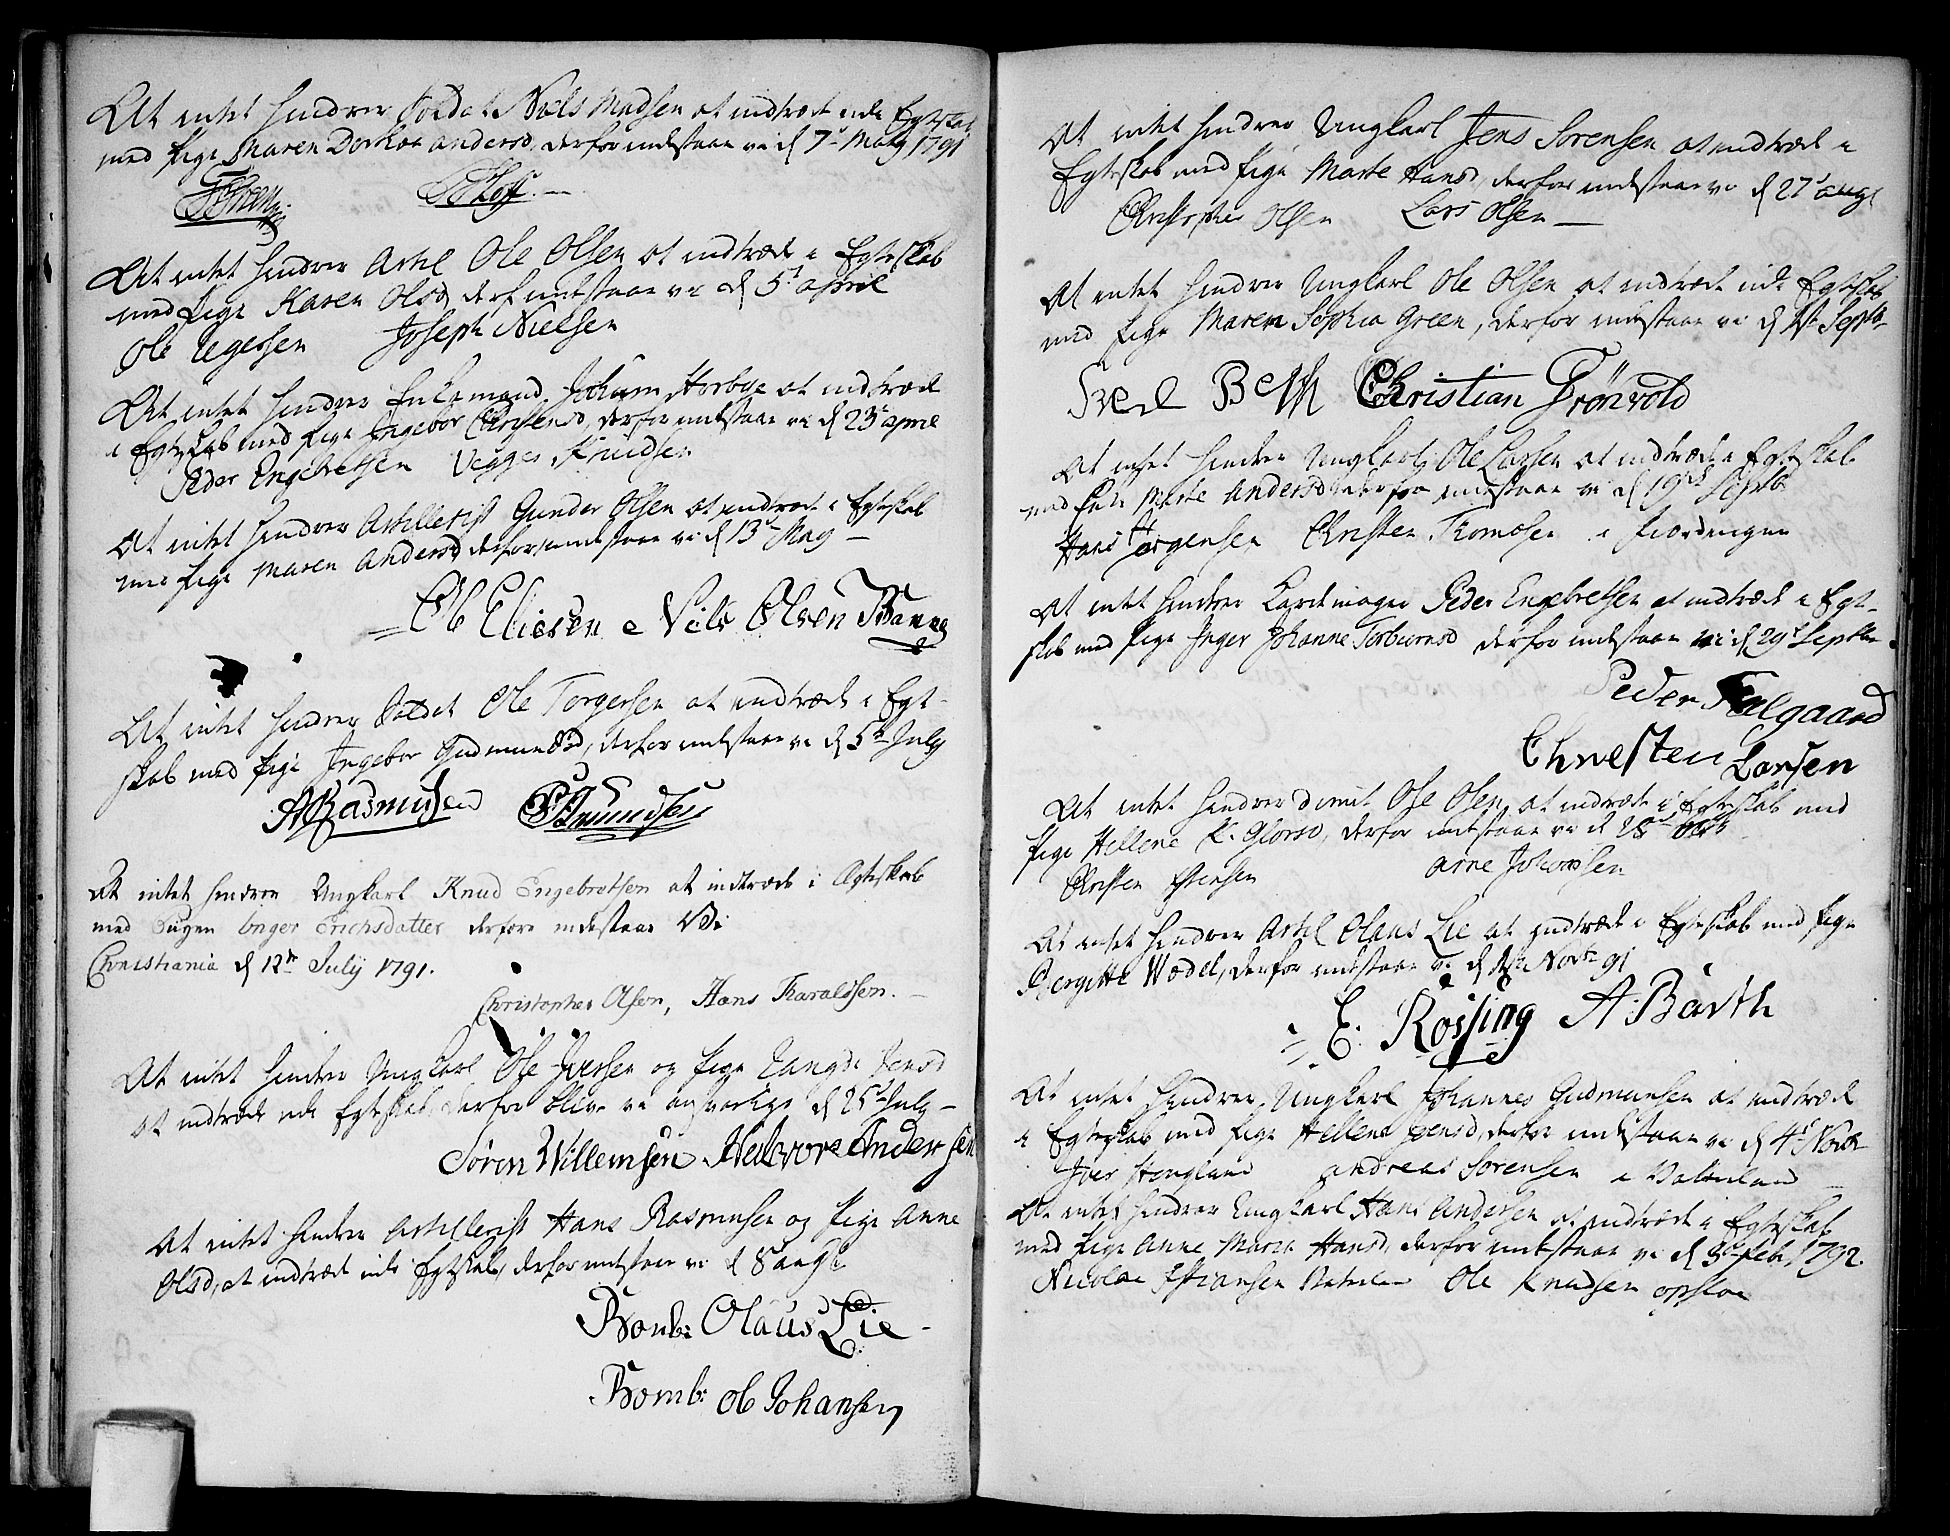 At intet hindrer Soldat Niels Madsen at indtræde i Egteskab
med Pige Maren Dorthea Andersd, derfor indestaae vi d 7de May 1791
At intet hindrer Artil Ole Olsen at indtræde i Egteskab
med Pige Karen Olsd derf indestaae vi d 5t april
Ole Joseph Nielsen
At intet hindrer Enkemand Johan at indtræde
i Egteskab med Pige Ingebor derfor indestaae vi d 23t april
Peder Engebretsen Knudsen
At intet hindrer Artillerist Gunder Olsen at indtræde i Egteskab
med Pige Maren Andersd derfor indestaae vi d 13t May
Ole Eliesen Niels Olsen
At intet hindrer Soldat Ole Torgersen at indtræde i Egt-
skab med Pige Ingebor Gudmundsd, derfor indestaae vi d 5te July
A Rasmussen
At intet hindrer Ungkarl Knud Engebretsen at indtræde i Ægteskab
med Pigen Inger Erichsdatter derfore indestaae Vi
Christiania d 12te July 1791.
Christopher Olsen, Hans Haraldssen.
At intet hindrer Ungkarl Ole Iversen og Pige Jensd
at indtræde udi Egteskab, derfor blive vi ansvarlige d 25t July
Søren Willemsen Halvor Andersen
At intet hindrer Artillerist Hans Rasmusen og Pige Anne
Olsd, at indtræde udi Egteskab, derfor indestaae vi d 8 aug
Bomb: Olaus Lie
Bomb: Ole Johansen
At intet hindrer Ungkarl Jens Sørensen at indtræde i
Egteskab med Pige Marte Hansd, derfor indestaae vi d 27t aug
Christopher Olsen Lars Olsen
At intet hindrer Ungkarl Ole Olsen at indtræde udi Egteskab
med Pige Maren Sophia Green, derfor indestaae vi d Septb
Christian Grönvold
At intet hindrer Ungkarl Ole Larsen at indtræde i Egteskab
med Marte Andersd, derfor indestaae vi d 19de Septb
Hans Jørgensen Christen Tomesen i
At intet hindrer Peder Engebretsen at indtræde i Egt-
skab med Pige Inger Johanne Torbiørnsd derfor indestaae vi d 29t Septbr
Peder
Christen Larsen
At intet hindrer Ole Olsen at indtræde i Egteskab med
Pige Hellene derfor indestaae vi d 28t
Christen Arne Johansen
At intet hindrer Artil Olaus Lie at indtræde i Egteskab med Pige
Bergitte Wedel, derfor indestaae vi d Novbr 91
E. Røssing A. Barth
At intet hindrer Ungkarl Johannes Gudmunsen at indtræde
i Egteskab med Pige Hellene Jensd, derfor indestaae vi d 4t Novb
Andreas Sørensen i
At intet hindrer Ungkarl Hans Andersen at indtræde i Egteskab
med Pige Anne Marie Hansd, derfor indestaae vi d 3t Feb 1792.
Nicolai Ole Knudsen opsloe